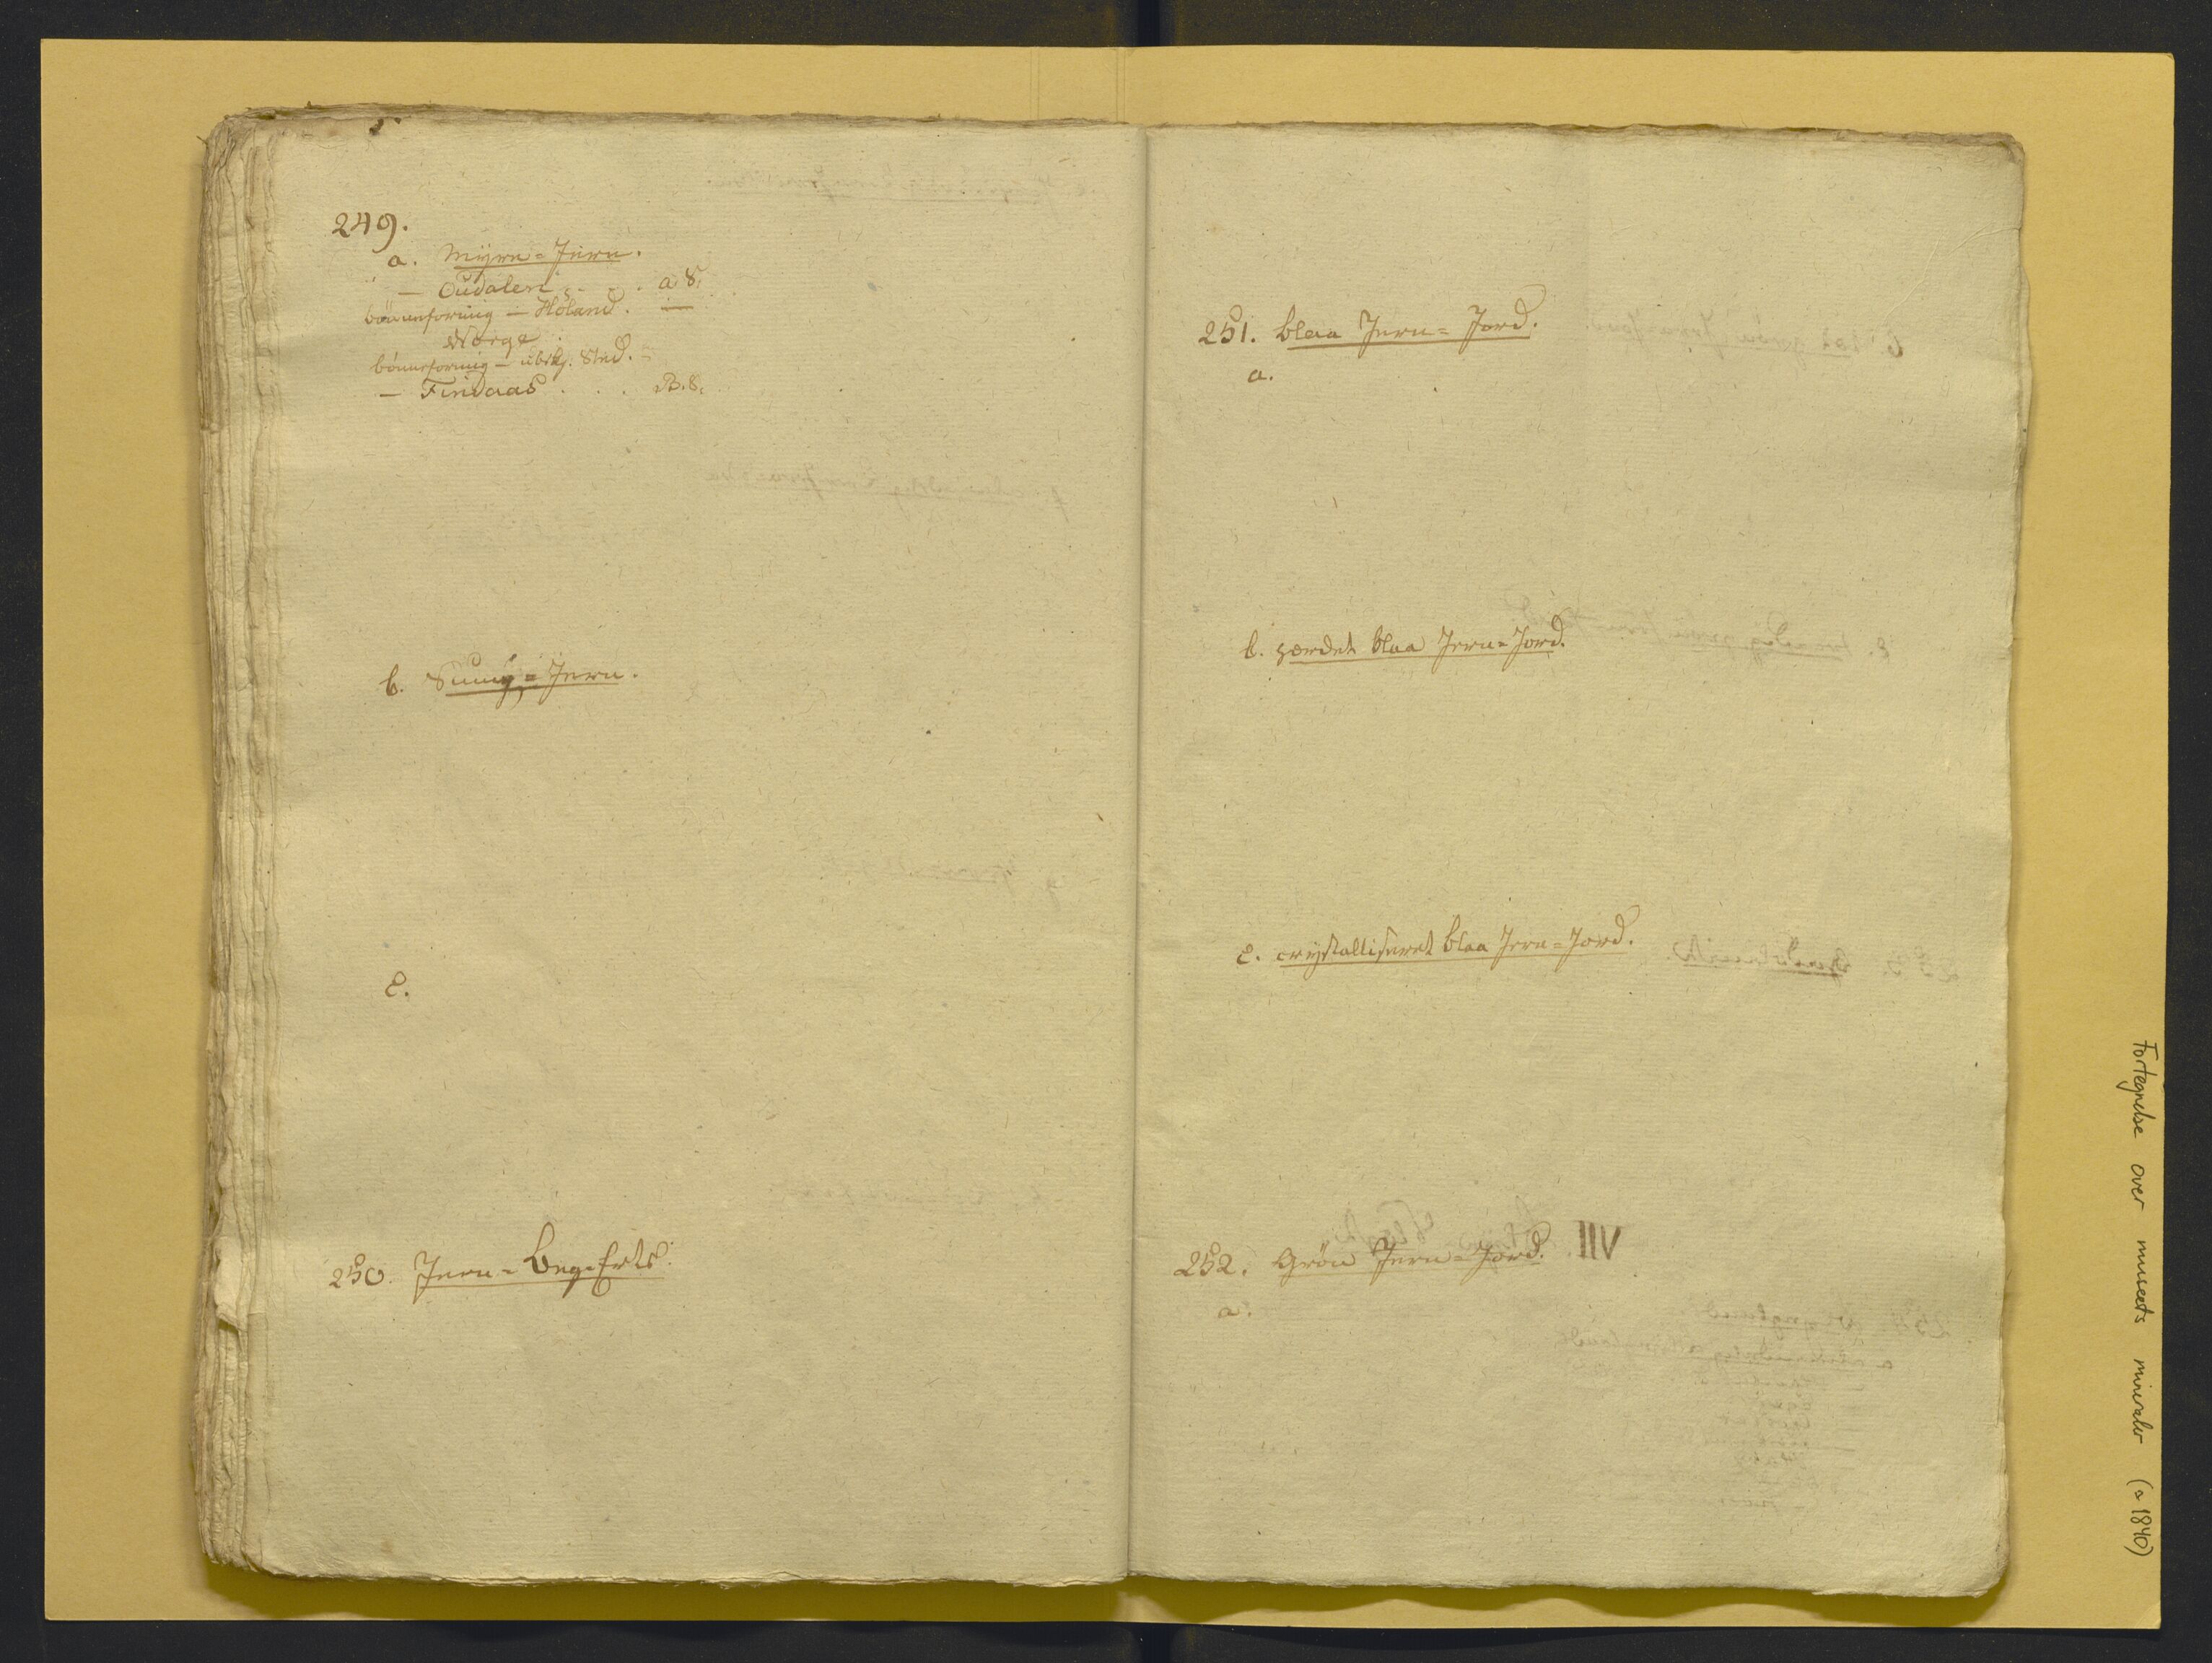 249.
a. Myre=Jern.
— Oudalen . . . a 8.
bönneformig — Höland. —
Norge
bönneformig — ubekj. Sted. =
— Findaas . . . B.8.
b. Sump=Jern.
c.
250. Jern=Beg=Erts.
251. blaa Jern=Jord.
a.
b. hærdet blaa Jern=Jord.
c. crystalliseret blaa Jern=Jord.
252. Grön Jern=Jord. IIV
a.
Fortegnelse over museets mineraler (ca 1840)